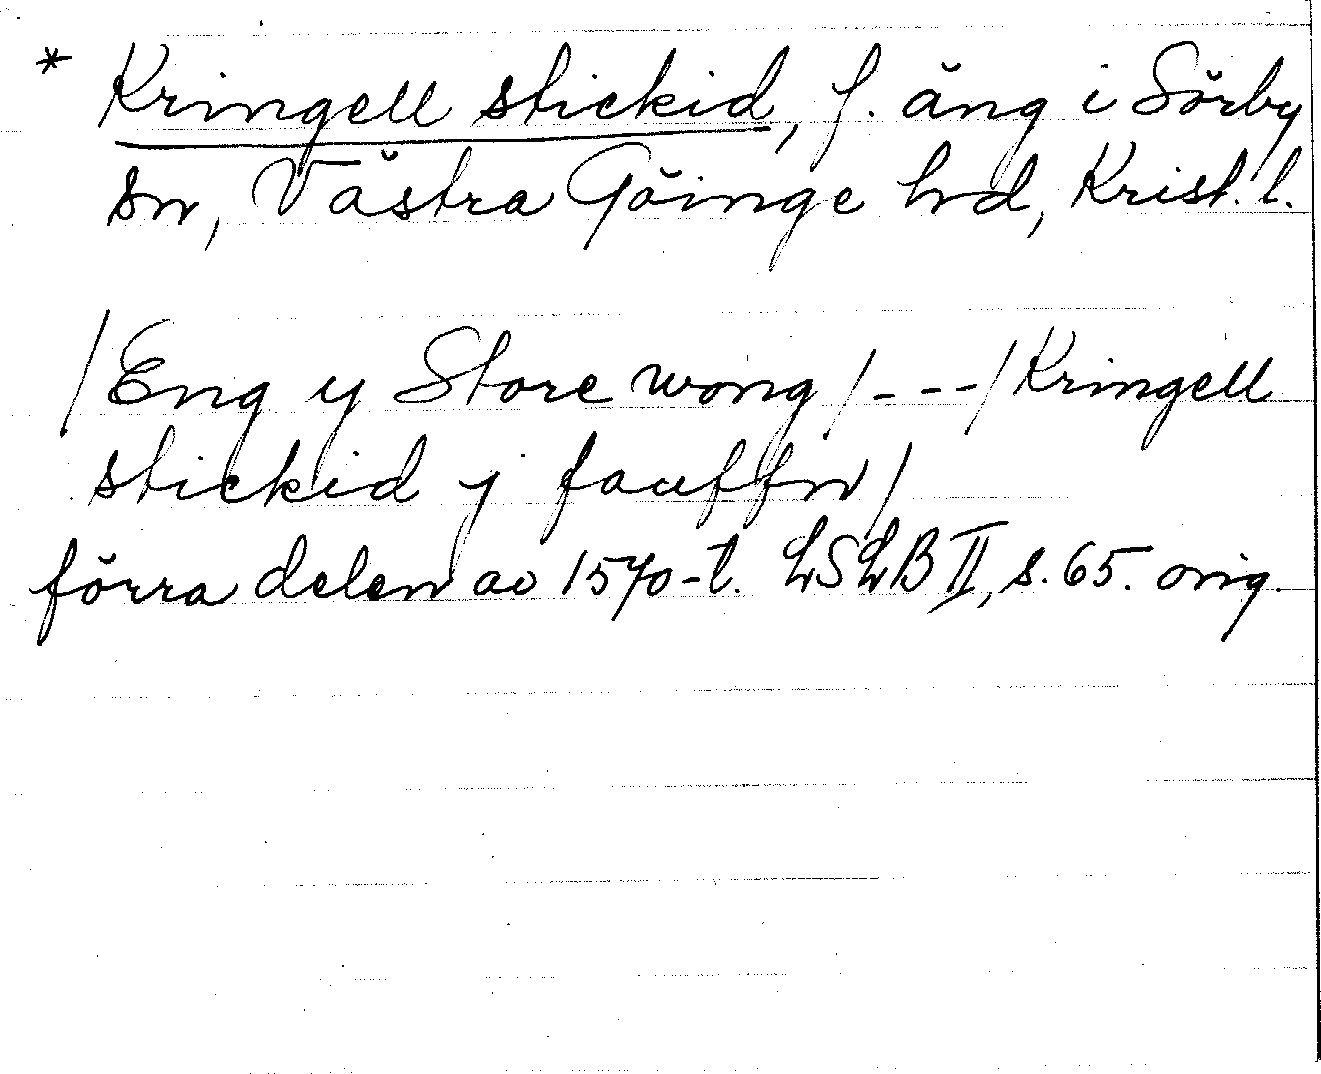 * Kringell stickid, f. äng i Sörby
sn, Västra Göinge hd, Krist. l.
/Eng y Store wong/---/Kringell
stickid j fauffn/
förra delen av 1570-t. LSLB II, s. 65. orig.